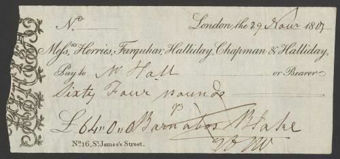 No. London, the 29 Novr 1807
Messrs Herries, Farquhar, Halliday, Chapman & Halliday,
Pay to Mr Hall or Bearer
Sixty Four pounds
£64.0.0 Barnabas Blake
No. 16, St. James's Street.